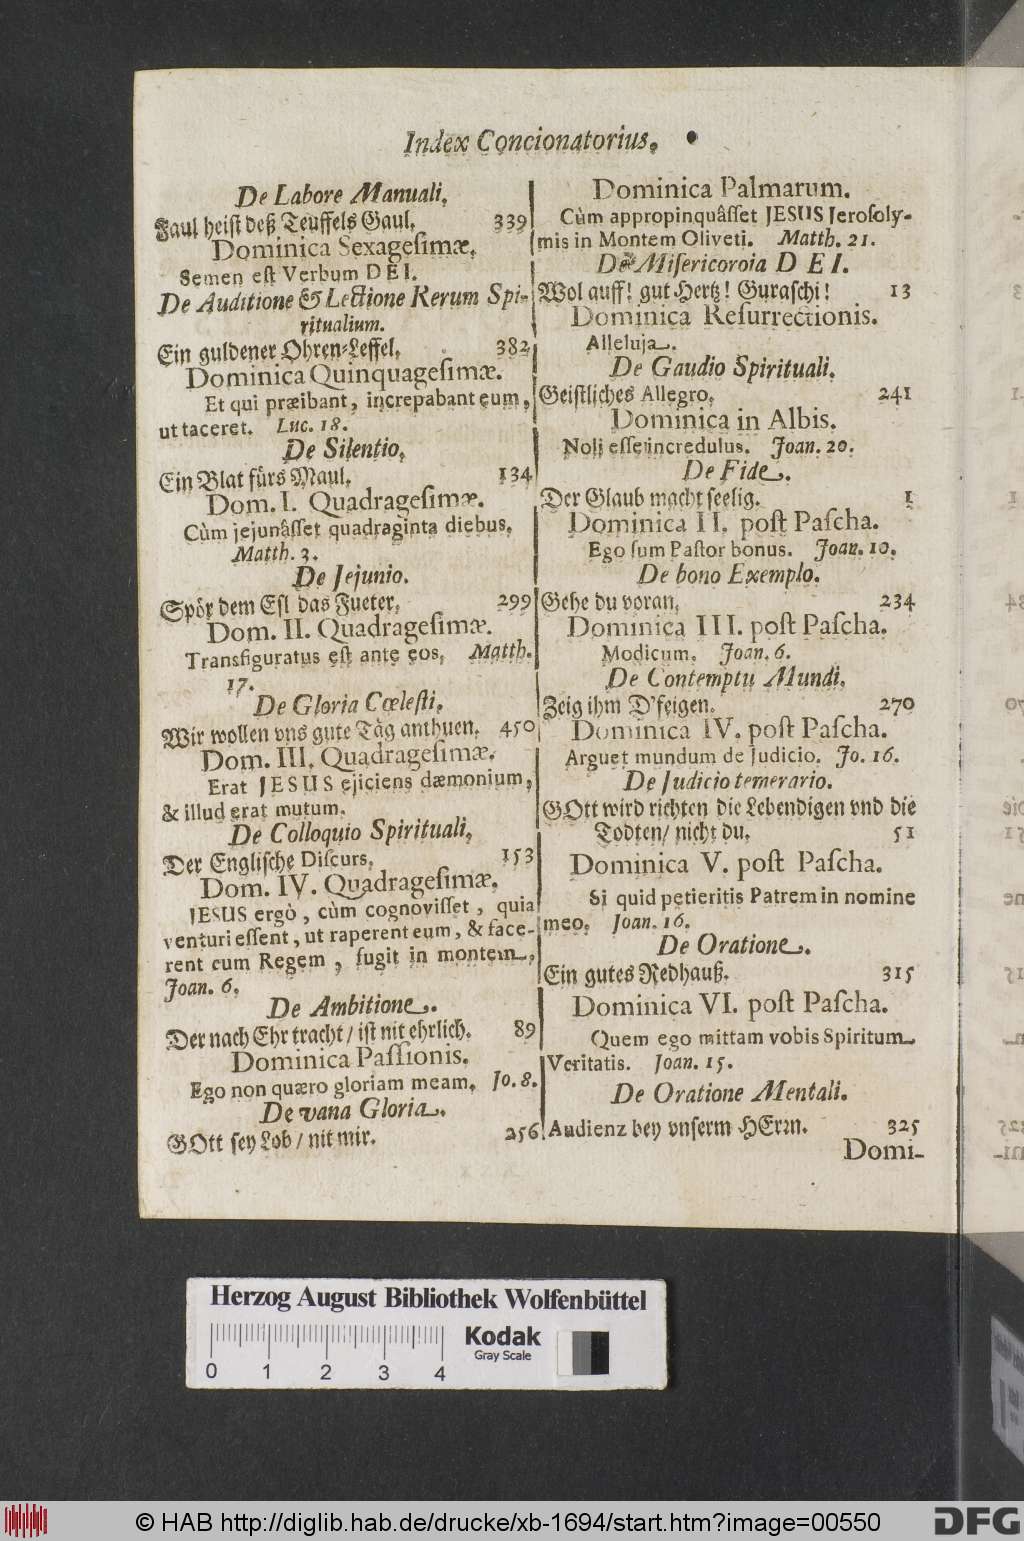 Index Concionatorius.
De Labore Manuali.
Faul heist deß Teuffels Gaul. 339
Dominica Sexagesimæ.
Semen est Verbum DEI.
De Auditione & Lectione Rerum Spi-
ritualium.
Ein guldener Ohren-Leffel. 382
Dominica Quinquagesimæ.
Et qui præibant, increpabant eum,
ut taceret. Luc. 18.
De Silentio.
Ein Blat fürs Maul. 134
Dom. I. Quadragesimæ.
Cùm jejunâsset quadraginta diebus.
Matth. 3.
De Jejunio.
Spör dem Esl das Fueter. 299
Dom. II. Quadragesimæ.
Transfiguratus est ante eos. Matth.
17.
De Gloria Cœlesti.
Wir wollen vns gute Täg anthuen. 450
Dom. III. Quadragesimæ.
Erat JESUS ejiciens dæmonium,
& illud erat mutum.
De Colloquio Spirituali.
Der Englische Discurs. 153
Dom. IV. Quadragesimæ.
JESUS ergò, cùm cognovisset, quia
venturi essent, ut raperent eum, & face-
rent eum Regem, fugit in montem,
Joan. 6.
De Ambitione.
Der nach Ehr tracht / ist nit ehrlich. 89
Dominica Passionis.
Ego non quæro gloriam meam. Jo. 8.
De vana Gloria.
GOtt sey Lob / nit mir. 256
Dominica Palmarum.
Cùm appropinquâsset JESUS Jerosoly-
mis in Montem Oliveti. Matth. 21.
De Misericordia DEI.
Wol auff! gut Hertz! Guraschi! 13
Dominica Resurrectionis.
Alleluja.
De Gaudio Spirituali.
Geistliches Allegro. 241
Dominica in Albis.
Noli esse incredulus. Joan. 20.
De Fide.
Der Glaub macht seelig. 1
Dominica II. post Pascha.
Ego sum Pastor bonus. Joan. 10.
De bono Exemplo.
Gehe du voran. 234
Dominica III. post Pascha.
Modicum. Joan. 6.
De Contemptu Mundi.
Zeig ihm D'feigen. 270
Dominica IV. post Pascha.
Arguet mundum de Judicio. Jo. 16.
De Judicio temerario.
GOtt wird richten die Lebendigen vnd die
Todten / nicht du. 51
Dominica V. post Pascha.
Si quid petieritis Patrem in nomine
meo. Joan. 16.
De Oratione.
Ein gutes Redhauß. 315
Dominica VI. post Pascha.
Quem ego mittam vobis Spiritum
Veritatis. Joan. 15.
De Oratione Mentali.
Audienz bey vnserm HErrn. 325
Domi-
Herzog August Bibliothek Wolfenbüttel
0 1 2 3 4
Kodak
Gray Scale
© HAB http://diglib.hab.de/drucke/xb-1694/start.htm?image=00550
DFG